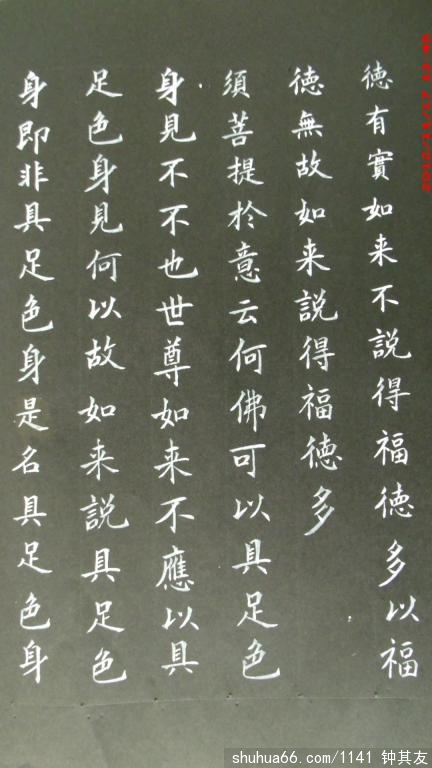 德有實如来不說得福德多以福
德無故如来說得福德多
須菩提扵意云何佛可以具足色
身見不不也世尊如来不應以具
足色身見何以故如来說具足色
身即非具足色身是名具足色身
shuhua66.com/1141 钟其友